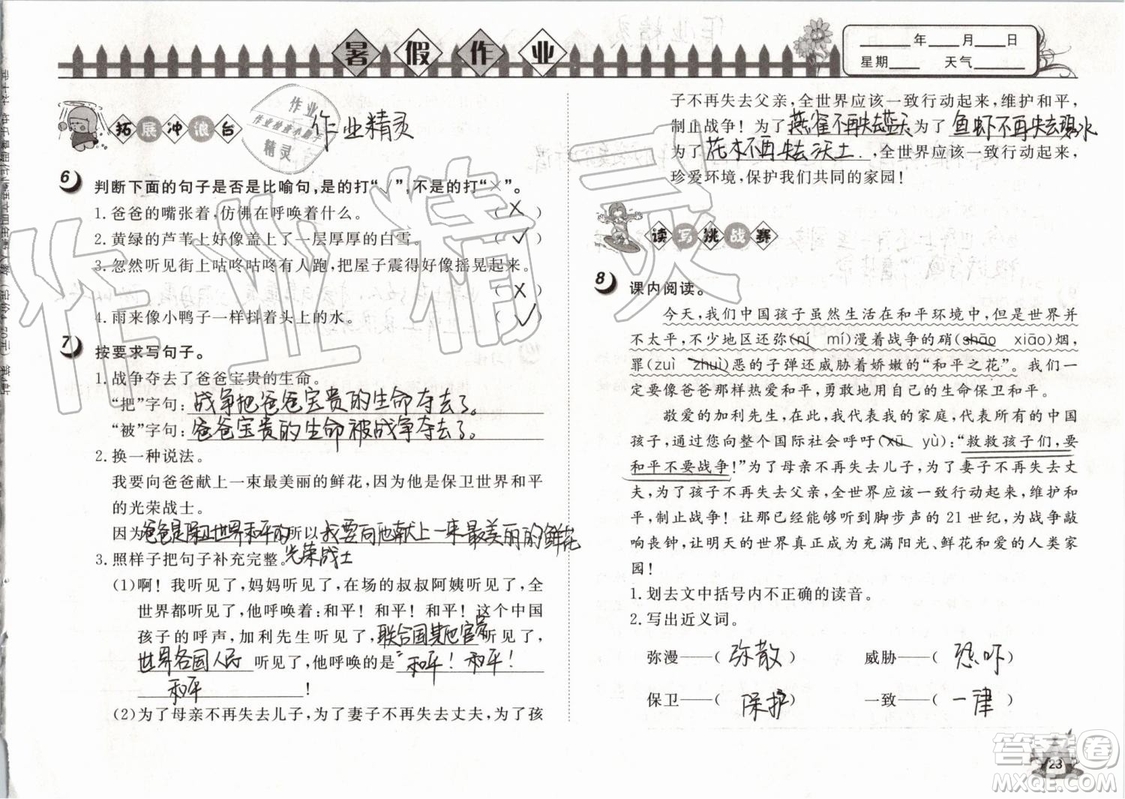 暑假作业
____年____月____日
星期____ 天气____
拓展冲浪台
作业精灵
6 判断下面的句子是否是比喻句,是的打“√”,不是的打“×”。
1.爸爸的嘴张着,仿佛在呼唤着什么。 ( X )
2.黄绿的芦苇上好像盖上了一层厚厚的白雪。 ( ✓ )
3.忽然听见街上咕咚咕咚有人跑,把屋子震得好像摇晃起来。
( X )
4.雨来像小鸭子一样抖着头上的水。 ( ✓ )
7 按要求写句子。
1.战争夺去了爸爸宝贵的生命。
“把”字句:战争把爸爸宝贵的生命夺去了。
“被”字句:爸爸宝贵的生命被战争夺去了。
2.换一种说法。
我要向爸爸献上一束最美丽的鲜花,他是保卫世界和平
的光荣战士。
因为爸爸是保卫世界和平的所以我要向他献上一束最美丽的鲜花
光荣战士
3.照样子把句子补充完整。
(1)啊!我听见了,妈妈听见了,在场的叔叔阿姨听见了,全
世界都听见了,他呼唤着:和平!和平!和平!这个中国
孩子的呼声,加利先生听见了,联合国其他官员听见了,
世界各国人民听见了,他呼唤的是“和平!和平!
和平!
(2)为了母亲不再失去儿子,为了妻子不再失去丈夫,为了孩
子不再失去父亲,全世界应该一致行动起来,维护和平,
制止战争!为了燕雀不再失去蓝天为了鱼虾不再失去碧水
为了花木不再失去沃土,全世界应该一致行动起来,
珍爱环境,保护我们共同的家园!
读写挑战赛
8 课内阅读。
今天,我们中国孩子虽然生活在和平环境中,但是世界并
不太平,不少地区还弥(ní mí)漫着战争的硝(shāo xiāo)烟,
罪(zuì zhuì)恶的子弹还威胁着娇嫩的“和平之花”。我们一
定要像爸爸那样热爱和平,勇敢地用自己的生命保卫和平。
敬爱的加利先生,在此,我代表我的家庭,代表所有的中国
孩子,通过您向整个国际社会呼吁(xū yù):“救救孩子们,要
和平不要战争!”为了母亲不再失去儿子,为了妻子不再失去丈
夫,为了孩子不再失去父亲,全世界应该一致行动起来,维护和
平,制止战争!让那已经能够听到脚步声的21世纪,为战争敲
响丧钟,让明天的世界真正成为充满阳光、鲜花和爱的人类家
园!
1.划去文中括号内不正确的读音。
2.写出近义词。
弥漫——( 弥散 ) 威胁——( 恐吓 )
保卫——( 保护 ) 一致——( 一律 )
23
答案圈
MXQE.COM